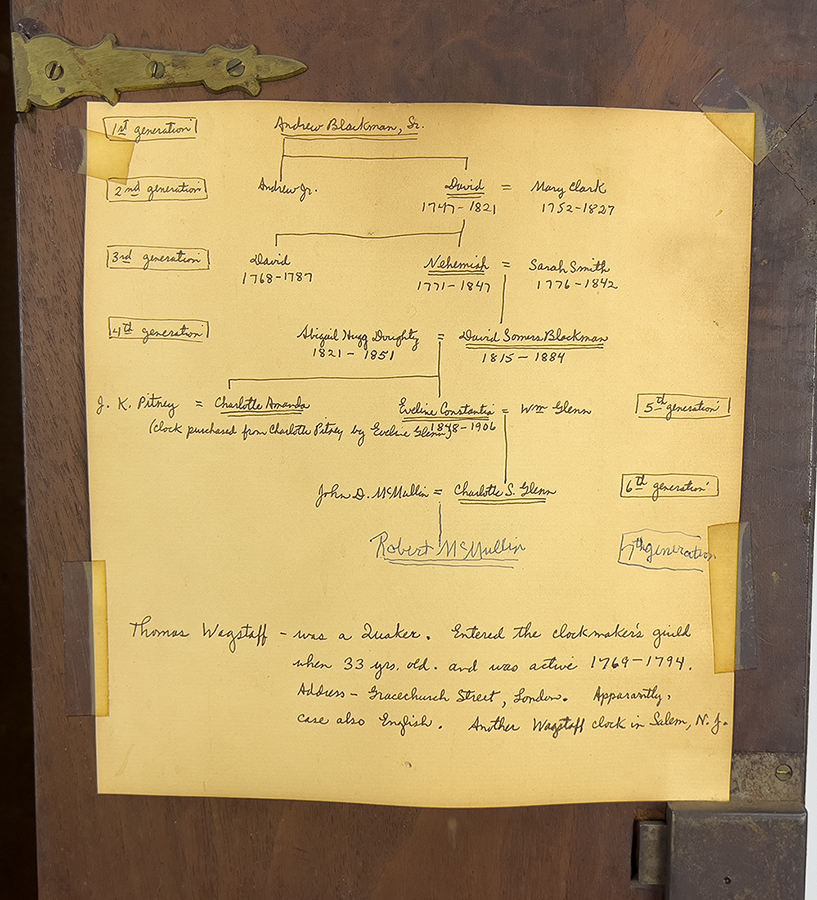 1st generation Andrew Blackman, Sr.
2nd generation Andrew Jr. David = Mary Clark
1747-1821 1752-1827
3rd generation David Nehemiah = Sarah Smith
1768-1787 1771-1847 1776-1842
4th generation Abigail Hugg Doughty = David Somers Blackman
1821-1851 1815-1884
J. K. Pitney = Charlotte Amanda Eveline Constantia = Wm Glenn 5th generation
(clock purchased from Charlotte Pitney by Eveline Glenn) 1848-1906
John D. McMullin = Charlotte S. Glenn 6th generation
Robert McMullin 7th generation
Thomas Wagstaff - was a Quaker. Entered the clockmaker's guild
when 33 yrs. old. and was active 1769-1794.
Address - Gracechurch Street, London. Apparantly,
case also English. Another Wagstaff clock in Salem, N.J.